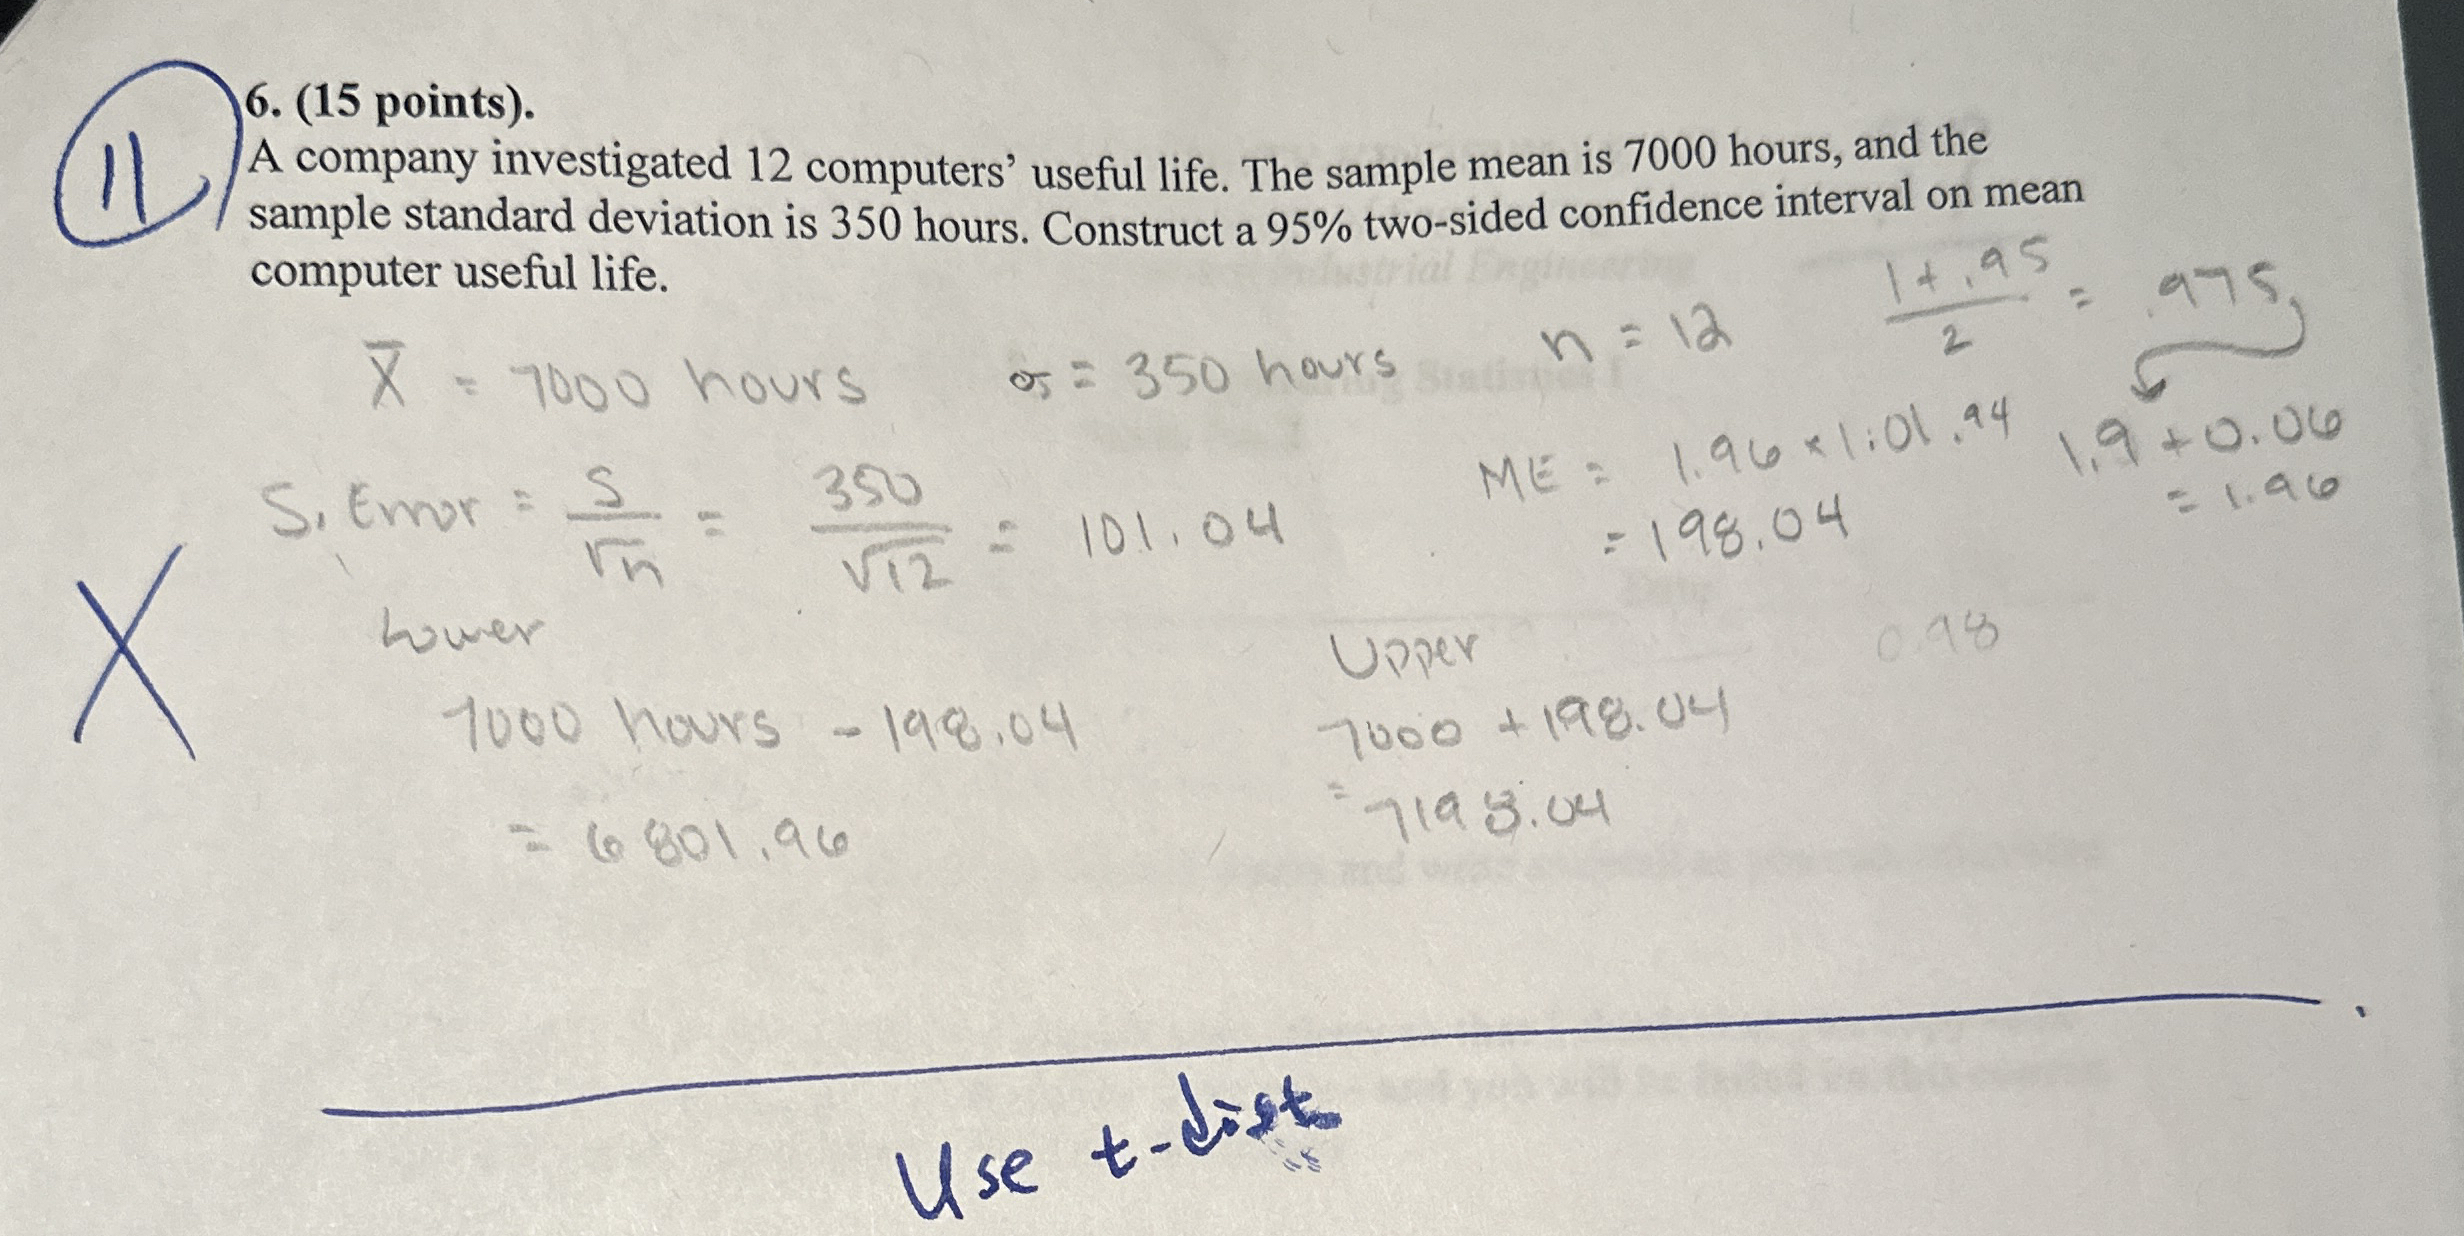 11
6. (15 points).
A company investigated 12 computers’ useful life. The sample mean is 7000 hours, and the
sample standard deviation is 350 hours. Construct a 95% two-sided confidence interval on mean
computer useful life.
1+.95 / 2 = .975
X̄ = 7000 hours σ = 350 hours n = 12
ME = 1.96 × 1.01.94 1.9 + 0.06
= 198.04 = 1.96
S. Error = S/√n = 350/√12 = 101.04
X
Lower Upper 0.98
7000 hours - 198.04 7000 + 198.04
= 6801.96 = 7198.04
Use t-dist